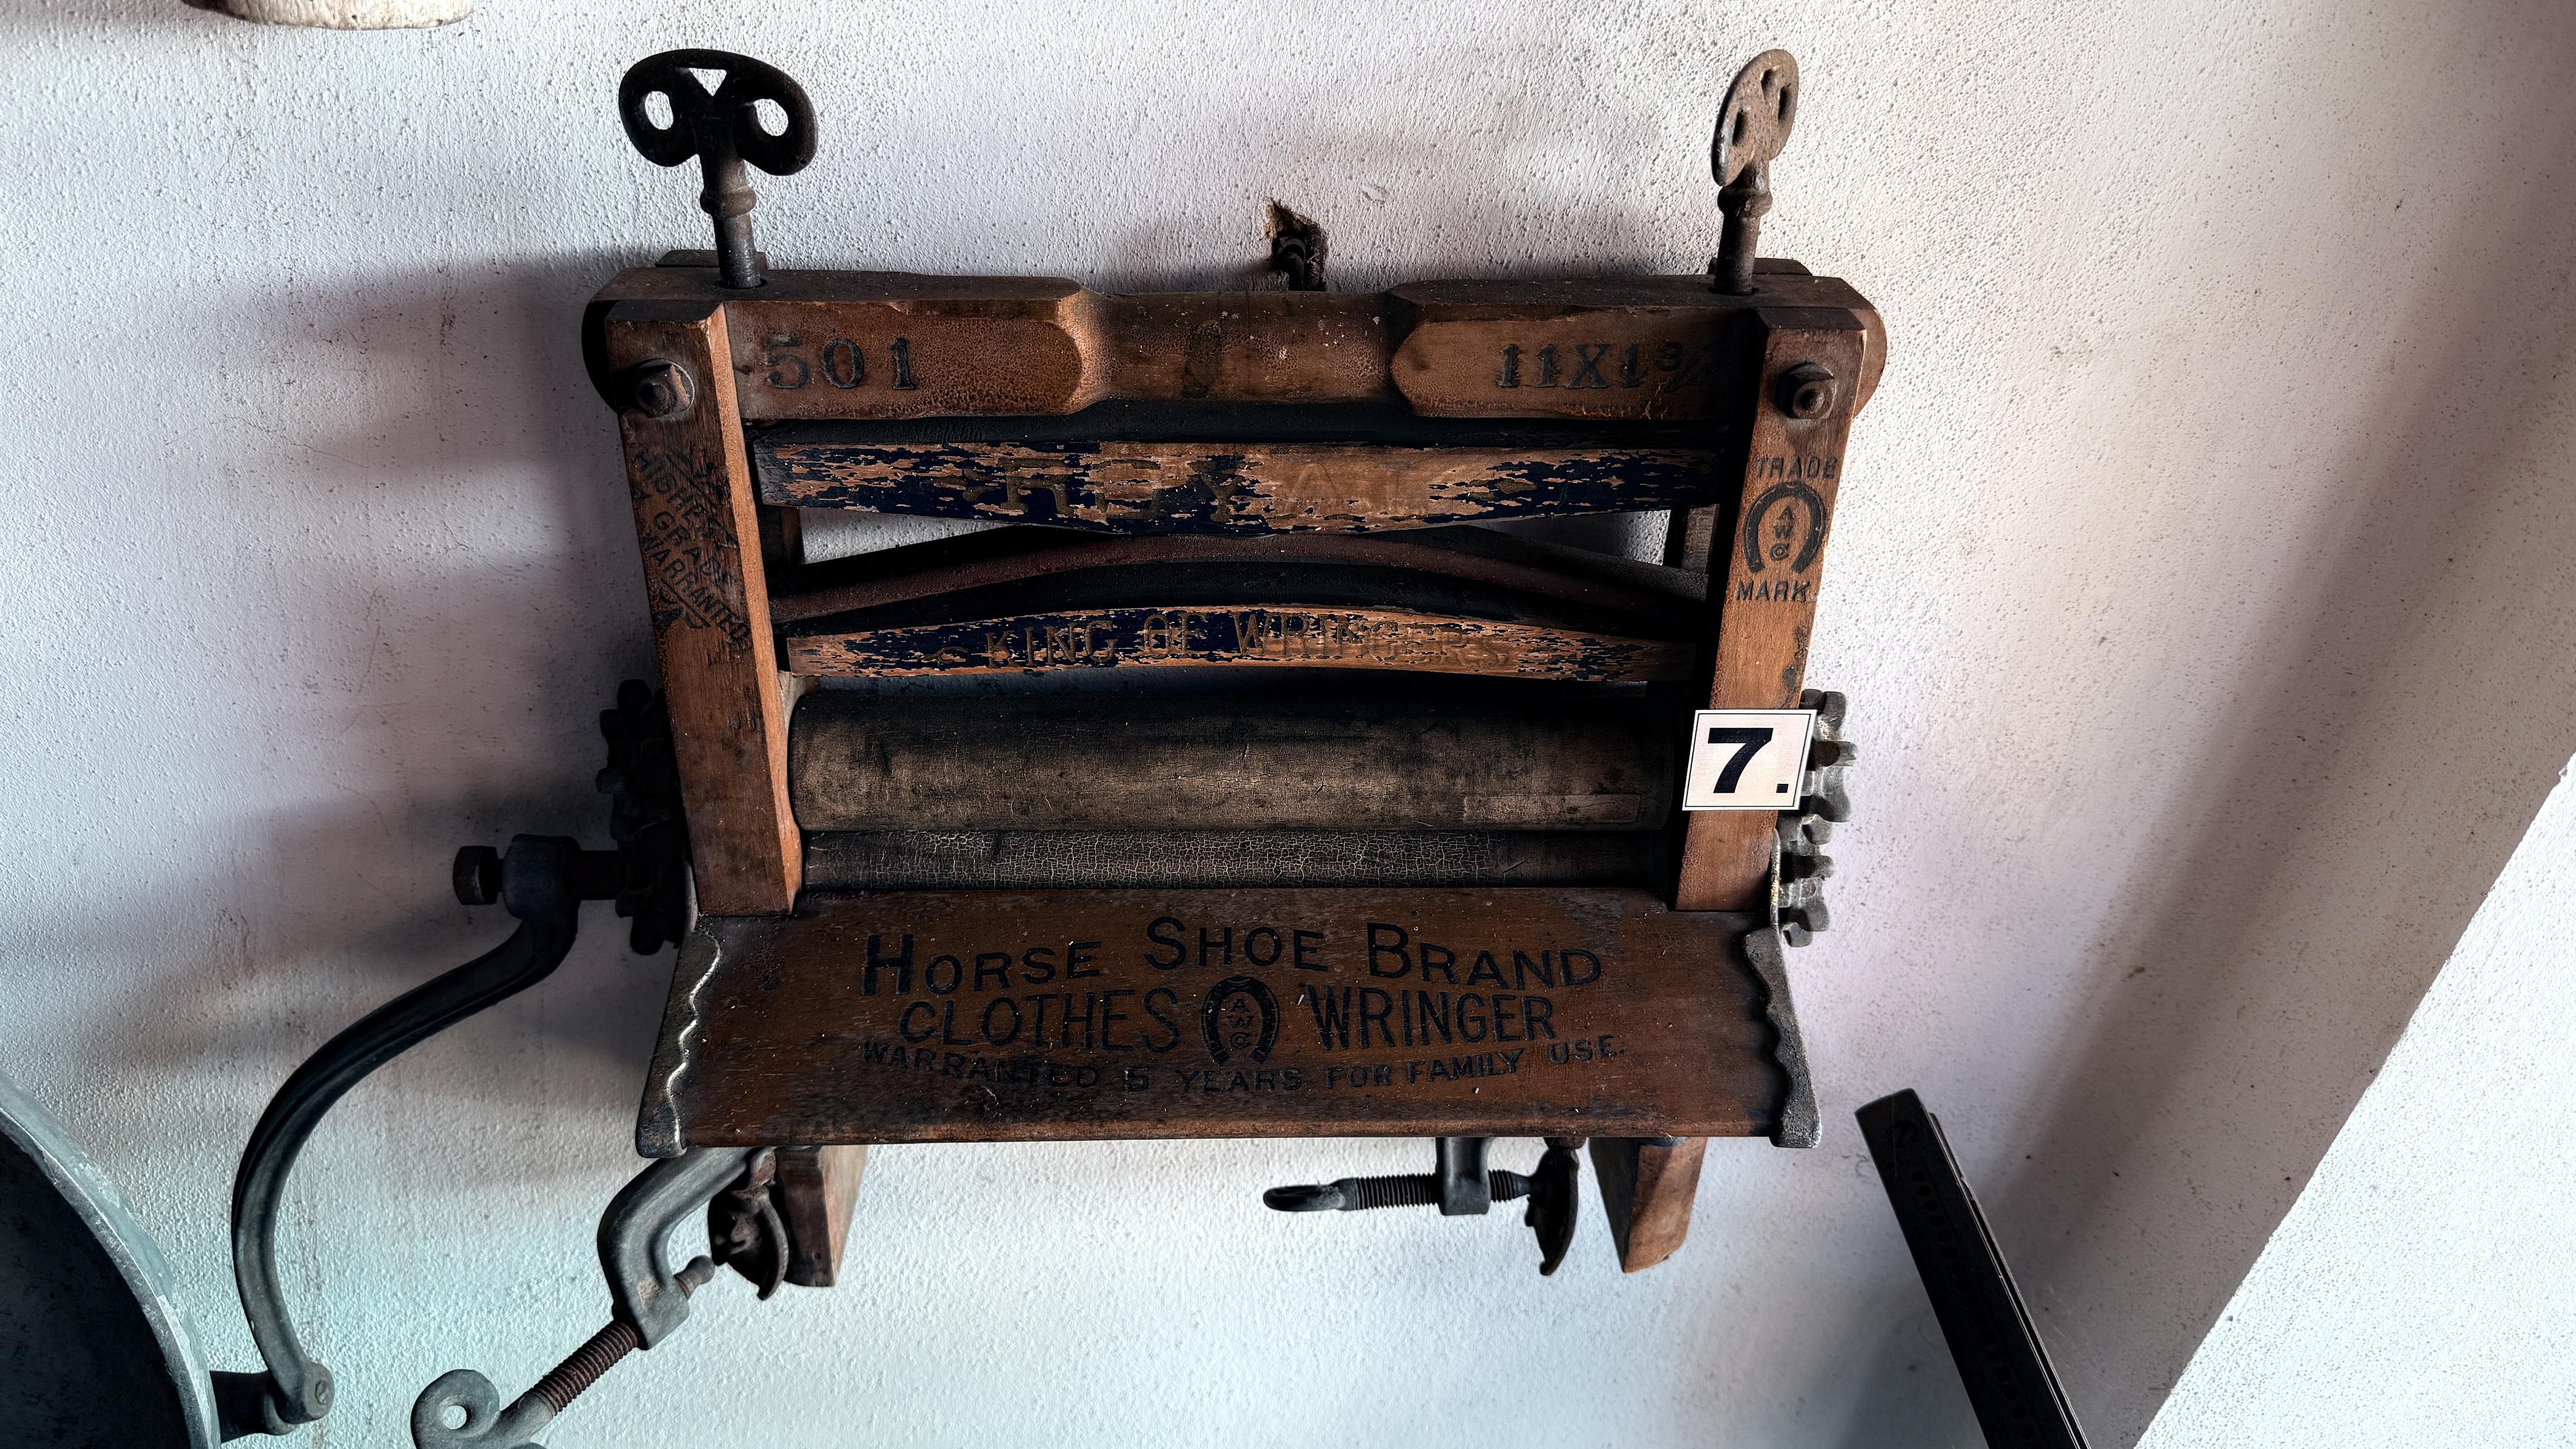 501
11X1¾
ROYAL
HIGHEST
GRADE
WARRANTED
TRADE
A
W
Co
MARK
KING OF WRINGERS
7.
HORSE SHOE BRAND
CLOTHES A W Co WRINGER
WARRANTED 5 YEARS FOR FAMILY USE.